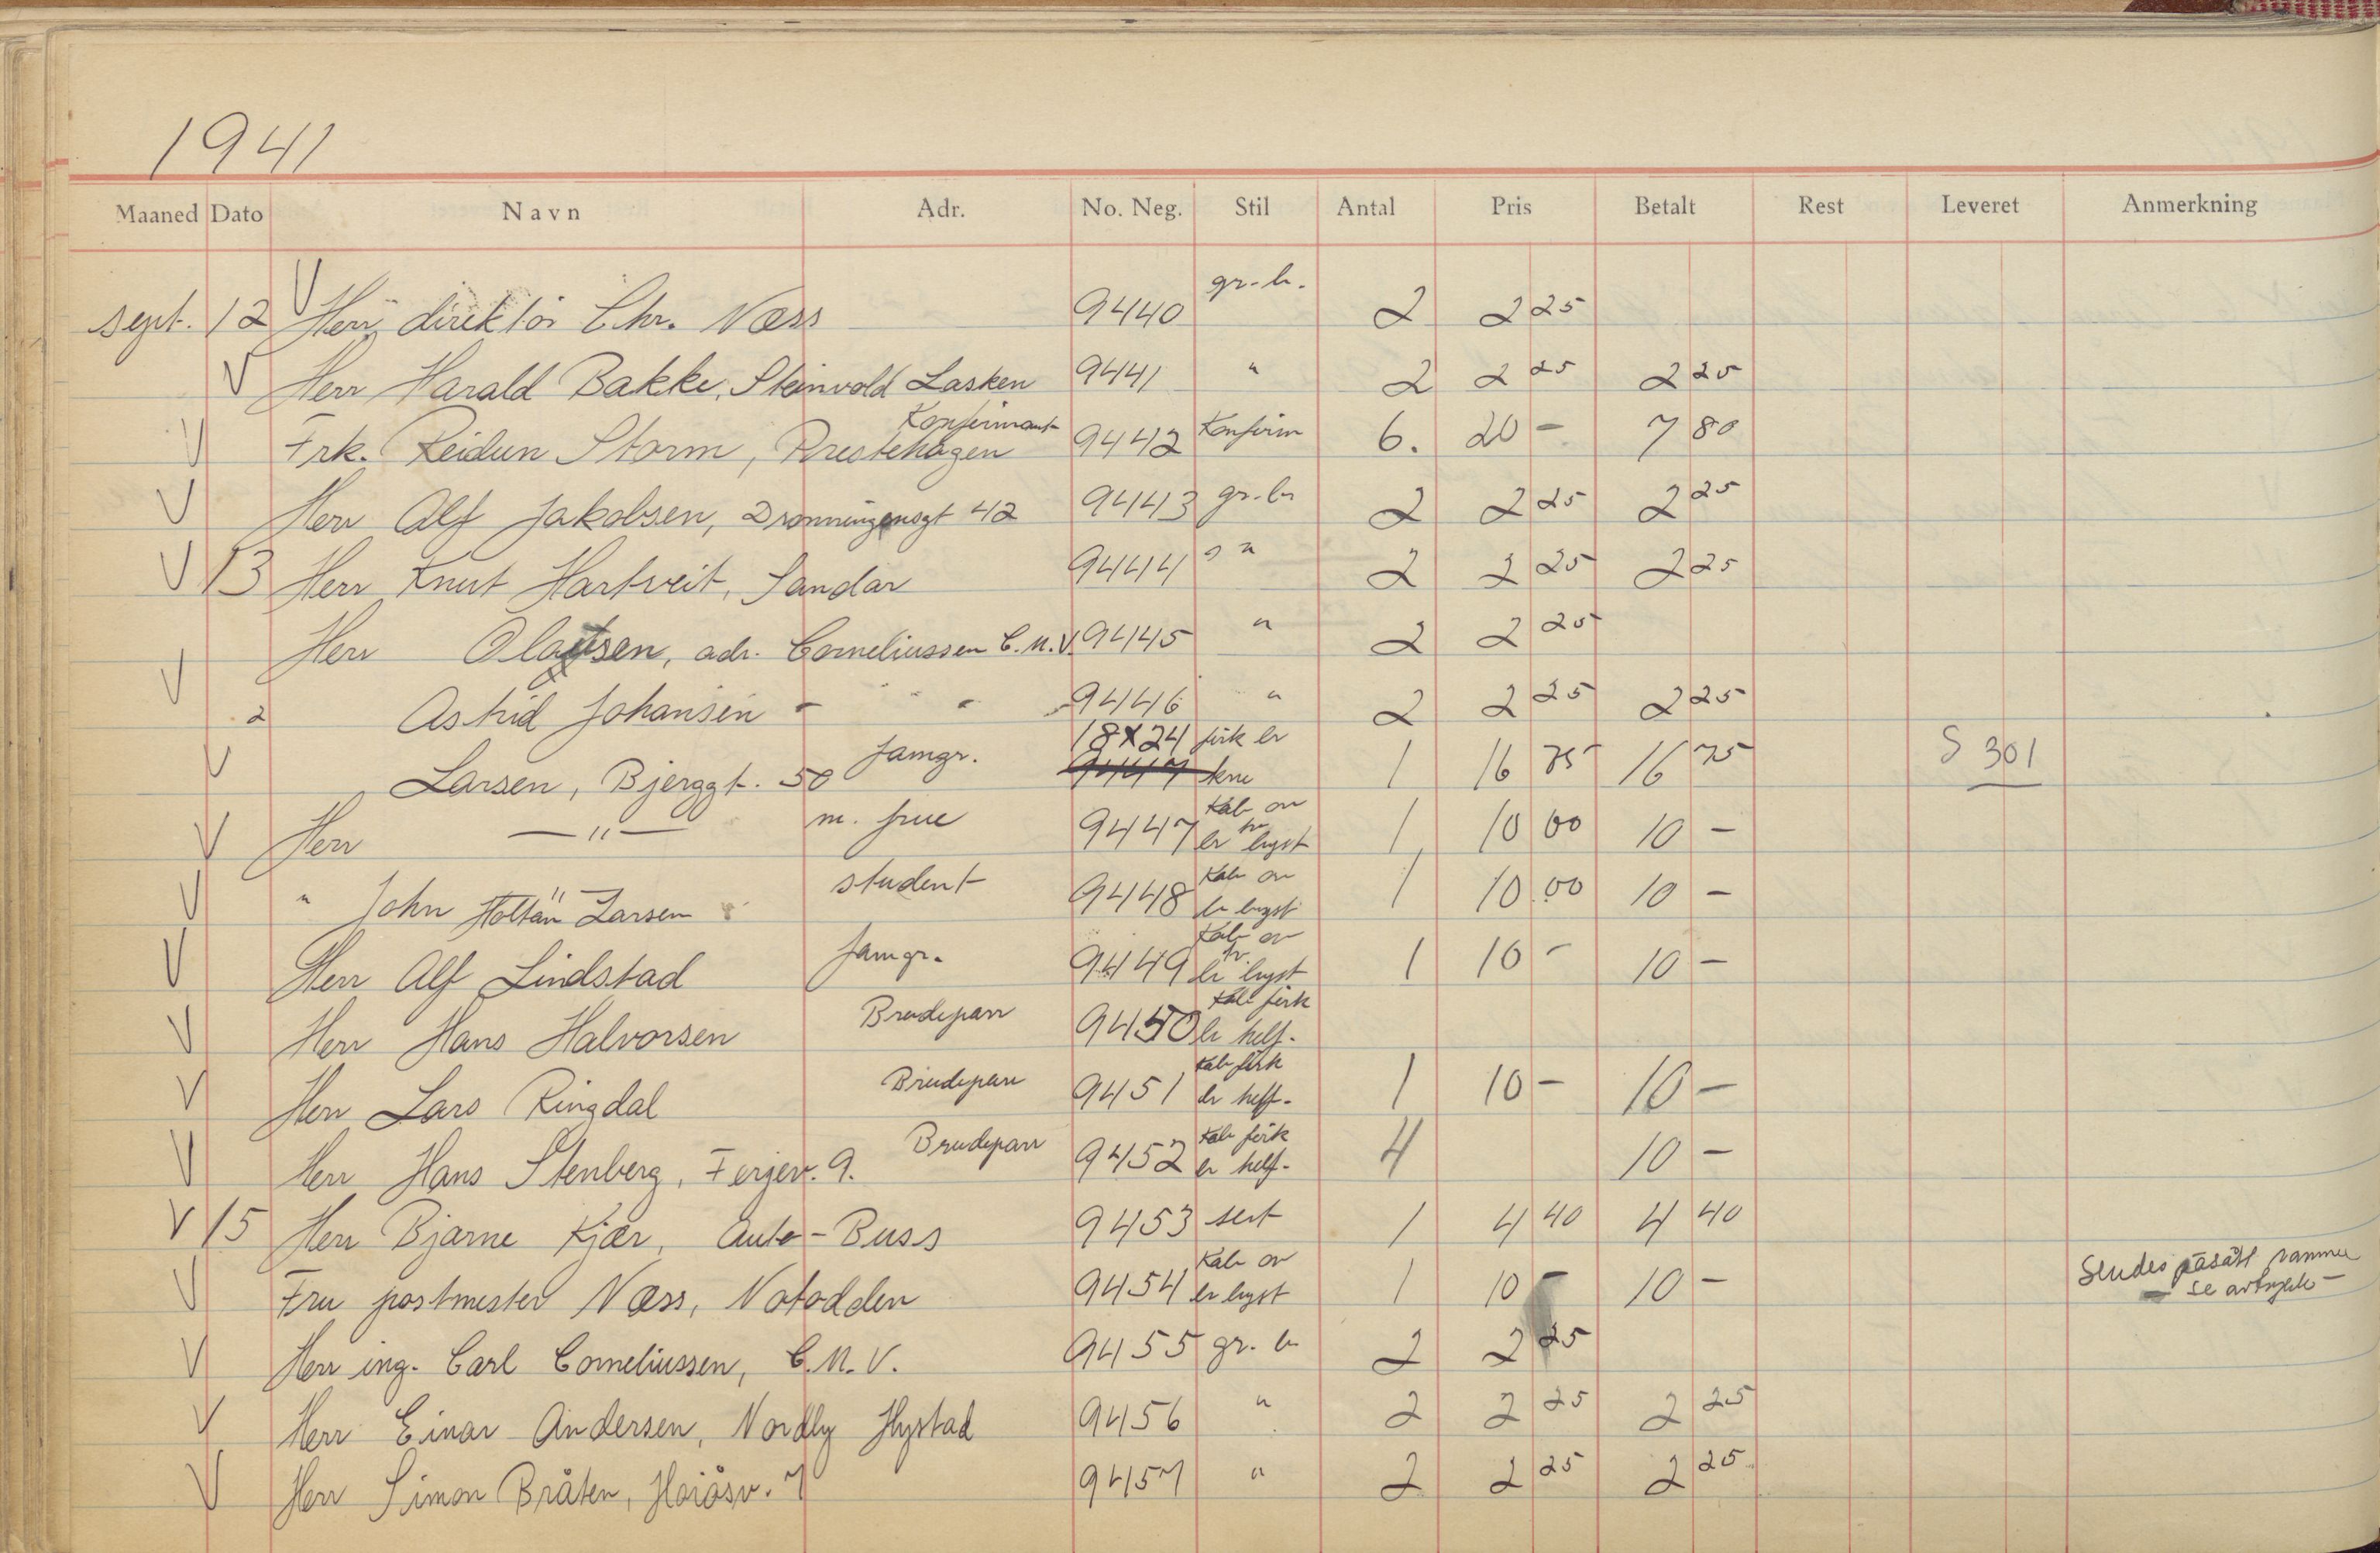 1941
Maaned Dato Navn Adr. No. Neg. Stil Antal Pris Betalt Rest Leveret Anmerkning
sept. 12 V Herr direktör Chr. Næss 9440 gr. br. 2 2 25
V Herr Harald Bakke, Steinvold Lasken 9441 " 2 2 25 2 25
Konfirmant
V Frk. Reidun Storm, Prestehagen 9442 Konfirm 6. 20 - 7 80
V Herr Alf Jakobsen, Dronningensgt 42 9443 gr. br 2 2 25 2 25
V 13 Herr Knut Hartveit, Sandar 9444 " 2 2 25 2 25
Herr Olausen, adr. Corneliussen C.M.V. 9445 " 2 2 25
V 2 Astrid Johansen - " - 9446 " 2 2 25 2 25
V Larsen, Bjerggt. 50 famgr. 18x24 9447 firk br kne 1 16 75 16 75 S 301
V Herr —"— m. frue 9447 Kab ov br bryst 1 10 00 10 -
V " John Holtan Larsen student 9448 Kab ov br bryst 1 10 00 10 -
V Herr Alf Lindstad famgr. 9449 Kab ov br bryst 1 10 - 10 -
V Herr Hans Halvorsen Brudepar 9450 Kab firk br helf.
V Herr Lars Ringdal Brudepar 9451 Kab firk br helf. 1 10 - 10 -
V Herr Hans Stenberg, Ferjev. 9. Brudepar 9452 Kab firk br helf. 4 10 -
V 15 Herr Bjarne Kjær, Auto-Buss 9453 sert 1 4 40 4 40
V Fru postmester Næss, Notodden 9454 Kab ov br bryst 1 10 - 10 - Sendes påsatt ramme
— se
V Herr ing. Carl Corneliussen, C.M.V. 9455 gr. br 2 2 25
V Herr Einar Andersen, Nordby Hystad 9456 " 2 2 25 2 25
V Herr Simon Bråten, Haiåsv. 7 9457 " 2 2 25 2 25